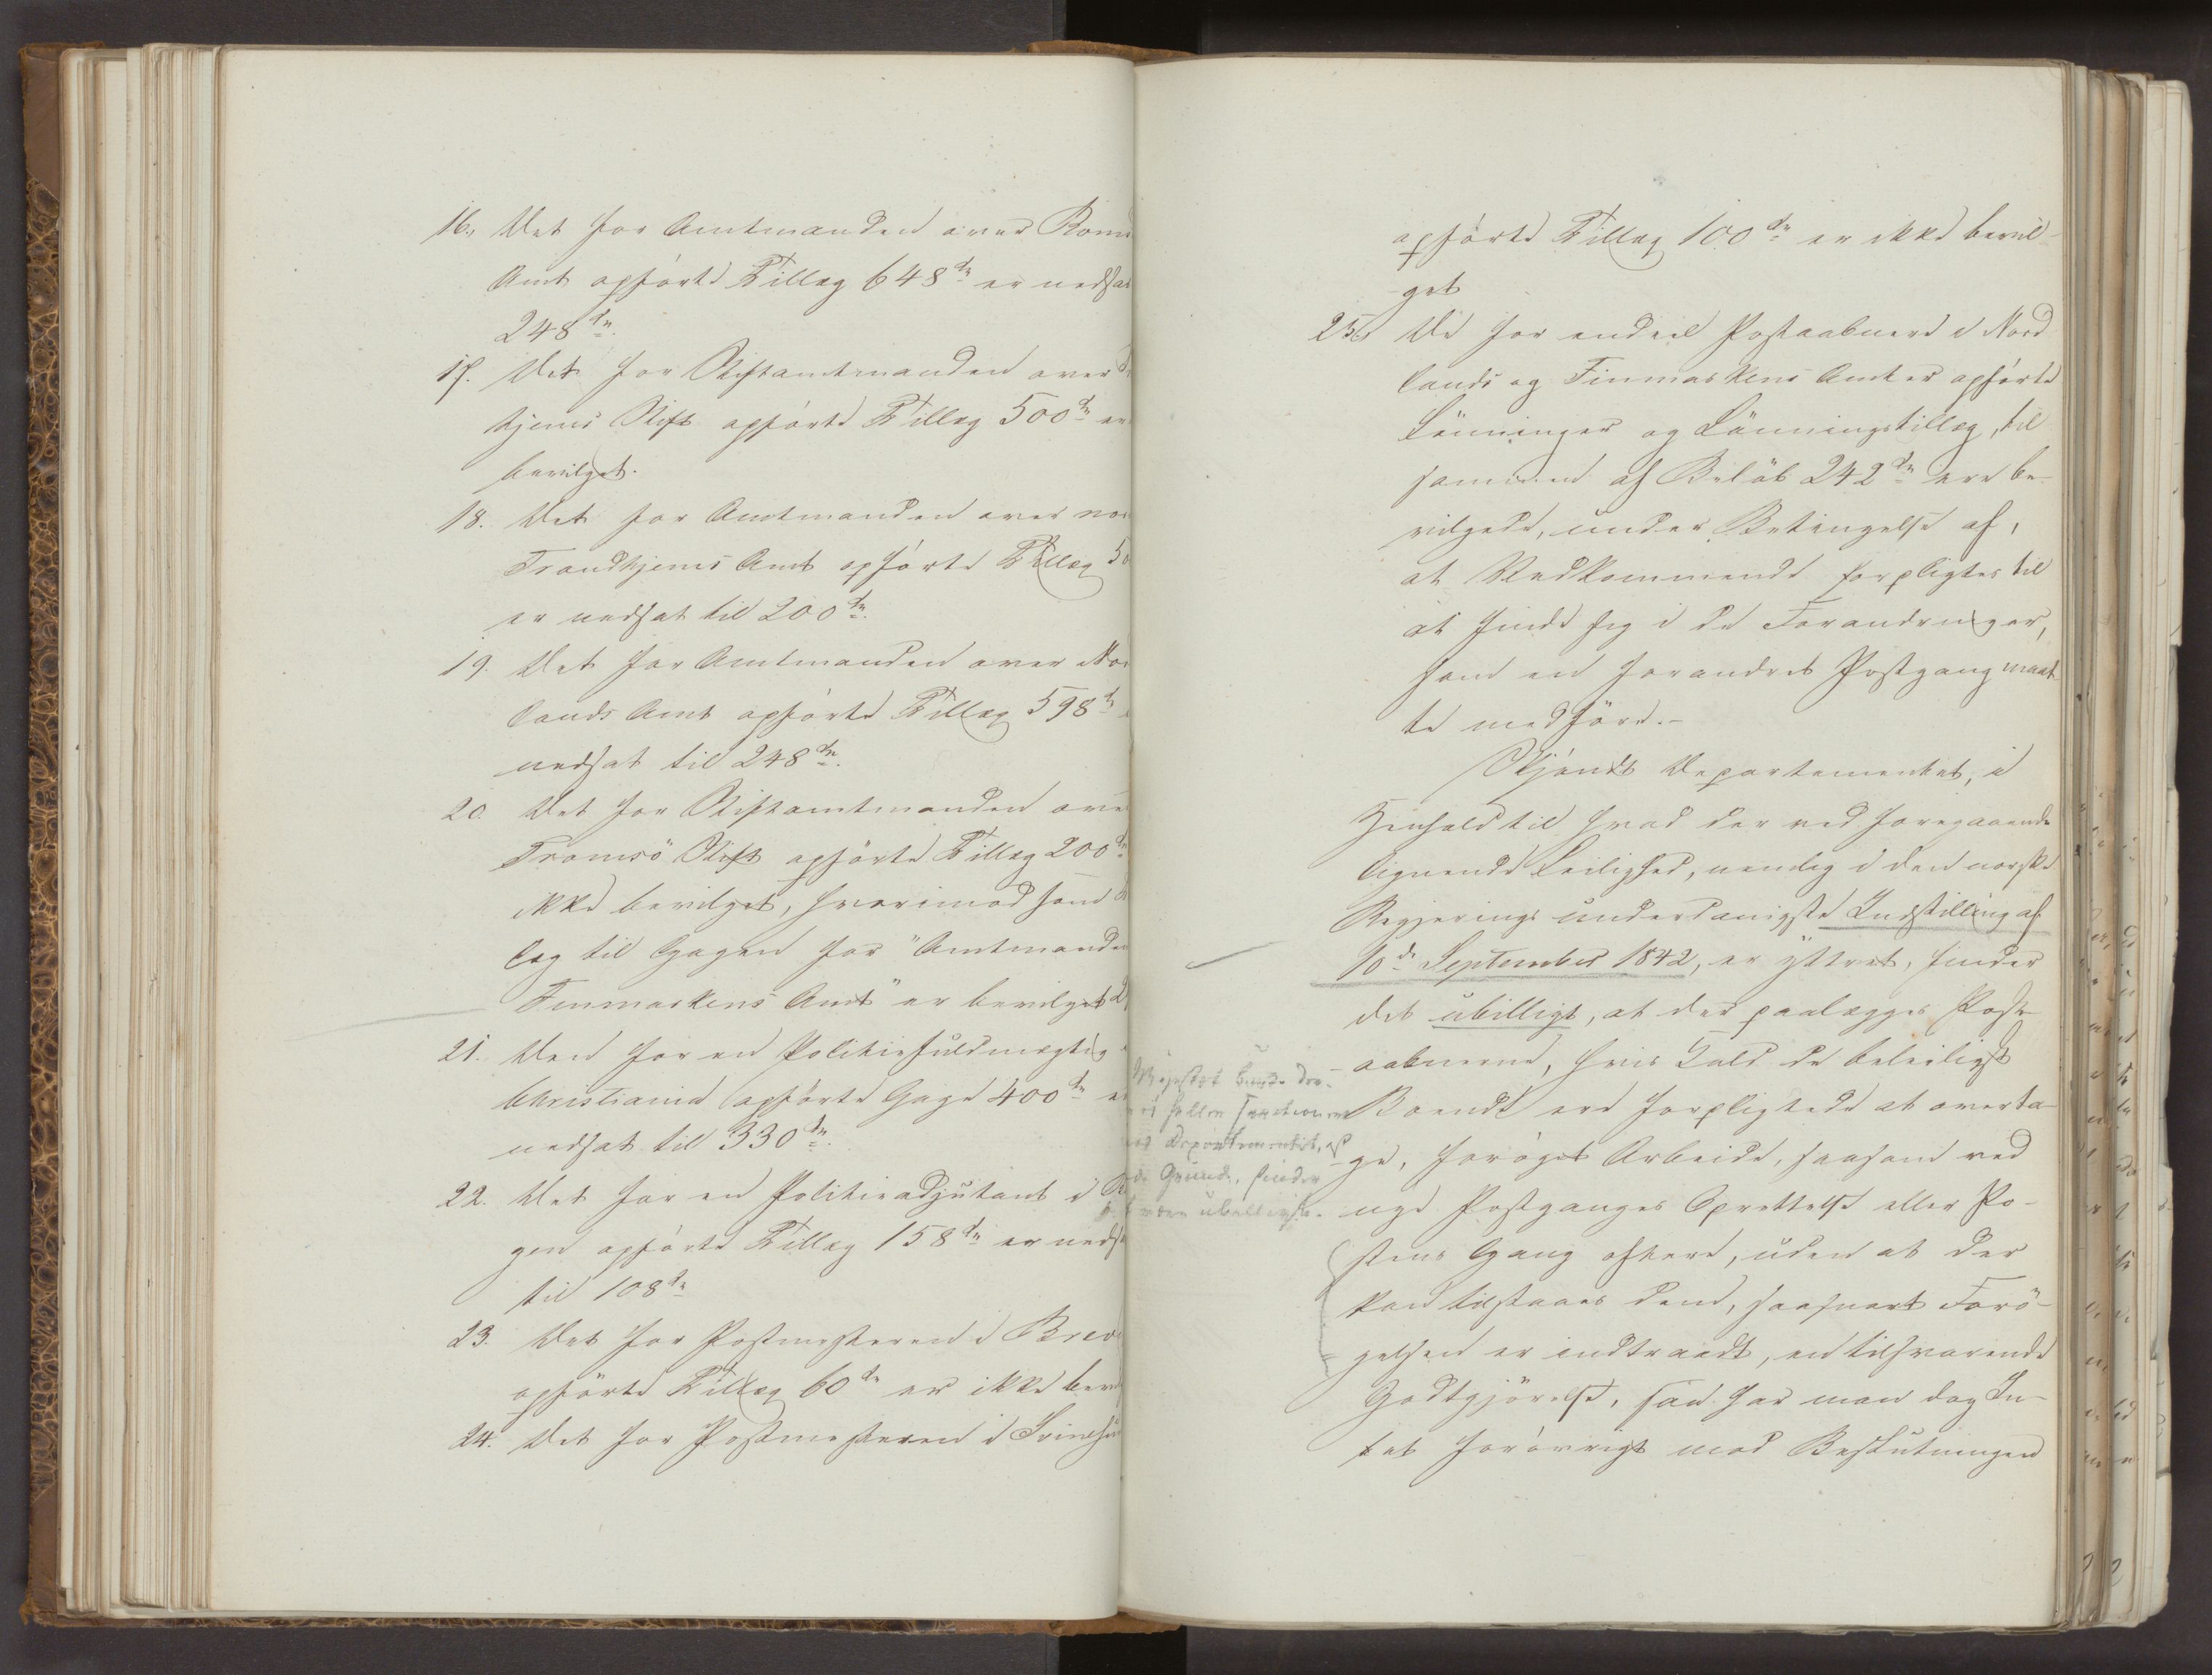 16. Det for Amtmanden over Roms
Amt opførte Tillæg 648 dr er nedsat
248 dr.
17. Det for Stiftamtmanden over Tr
hjems Stift opførte Tillæg 500 dr er
bevilget.
18. Det for Amtmanden over nor
Trondhjems Amt opførte Tillæg 50
er nedsat til 200 dr.
19. Det for Amtmanden over Nor
lands Amt opførte Tillæg 598 dr
nedsat til 248 dr.
20. Det for Stiftamtmanden over
Tromsö Stift opførte Tillæg 200 dr
ikke bevilget, hvorimod som
læg til Gagen for "Amtmanden
Finmarkens Amt" er bevilget 2
21. Den for en Politiefuldmægtig
Christiania opførte Gage 400 dr er
nedsat til 330 dr.
22. Det for en Politieadjutant i
gen opførte Tillæg 158 dr er neds
til 108 dr
23. Det for Postmesteren i Brev
opförte Tillæg 60 dr er ikke bev
24. Det for Postmesteren i Svinesu
opførte Tillæg 100 dr er ikke bevil-
get
25. De for endeel Postaabnere i Nord
lands og Finmarkens Amter opførte
Lönninger og Lönningstillæg, til
sammen af Beløb 242 dr ere be-
vilgede, under Betingelse af,
at Vedkommende forpligtes til
at finde sig i de Forandringer,
som en forandret Postgang maat-
te medföre.-
Skjöndt Departementet, i
Henhold til hvad der ved foregaaende
lignende Leilighed, nemlig i den norske
Regjerings underdanigste Indstilling af
10de September 1842, er yttret, finder
det ubilligt, at der paalægges Post-
aabnerne, hvis Kald de beleiligst
Boende ere forpligtede at overta-
ge, forøget Arbeide, saasom ved
nye Postganges Oprettelse eller Po-
stens Gang oftere, uden at der
kan tilstaaes dem, saasnart Forö-
gelsen er indtraadt, en tilsvarende
Godtgjörelse, saa har man dog In-
tet forøvrigt mod Beslutningen
Departementet, af
Grunde, finder
ubilligt.